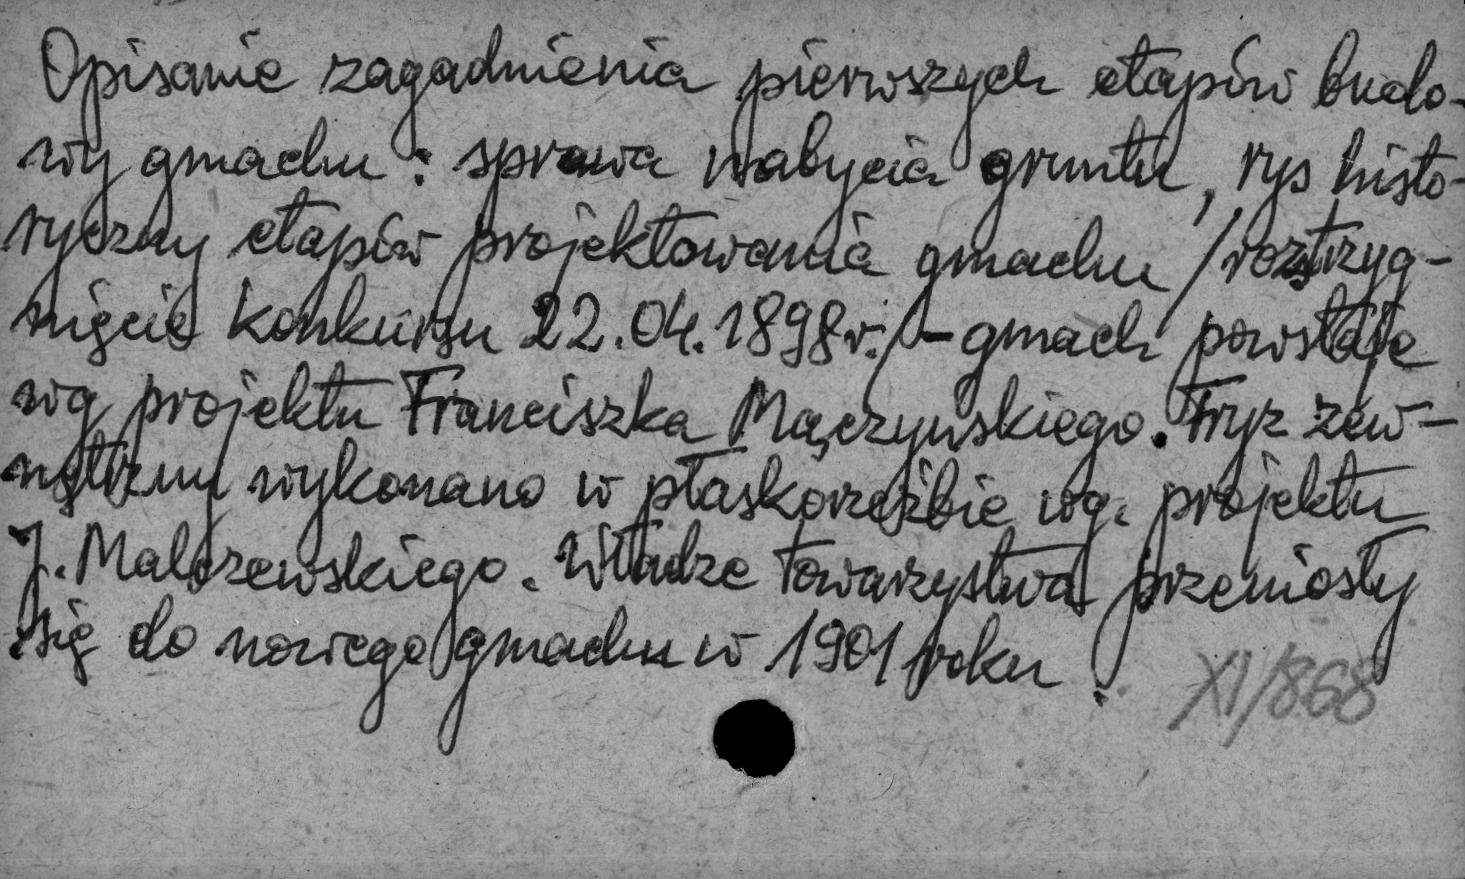 Opisanie zagadnienia pierwszych etapów budo-
wy gmachu : sprawa nabycia gruntu, rys histo-
ryczny etapów projektowania gmachu /rozstrzyg-
nięcie konkursu 22.04.1898r./ - gmach powstaje
wg projektu Franciszka Mączyńskiego. Fryz zew-
nętrzny wykonano w płaskorzeźbie wg. projektu
J. Malczewskiego. Władze Towarzystwa przeniosły
się do nowego gmachu w 1901 roku .
XI/868